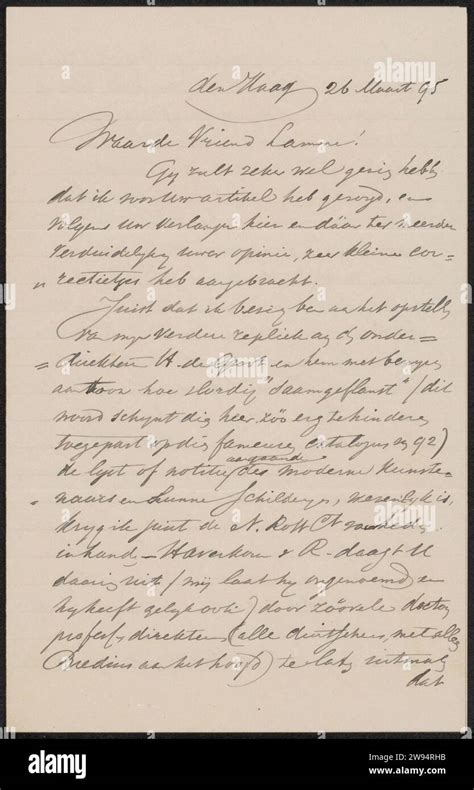 den Haag 26 Maart 95
Waarde Vriend Lamme!
Gij zult zeker wel gezien hebb
dat ik voor Uw artikel heb gezorgd, en
volgens Uw verlangen hier en dáár ter meerder
verduidelijking uwer opinie, zeer kleine cor-
rectietjes heb aangebracht.
Juist dat ik bezig ben aan het opstell
van mijn verdere repliek aan den onder-
direkteur H. de Groot en hem met
aantoon hoe slordig "saamgeflanst" (dit
woord schijnt dien heer zóó erg te hinderen
toegepast op dien fameusen catalogus van 92)
de lijst of notitie aangaande des moderne kunste-
naars en hunne Schilderijen, wezenlijk is,
krijg ik juist de N. Rott Ct van heden
in hand - Haverkorn v R. daagt U
daarin uit (mij laat hij ongenoemd en
hij heeft gelijk ook!) door zóóvele doctor
profess direkteurs (alle duitschers, met
Bredius aan het hoofd) te laten uitmaken
dat
alamy
Image ID: 2W94RHB
www.alamy.com